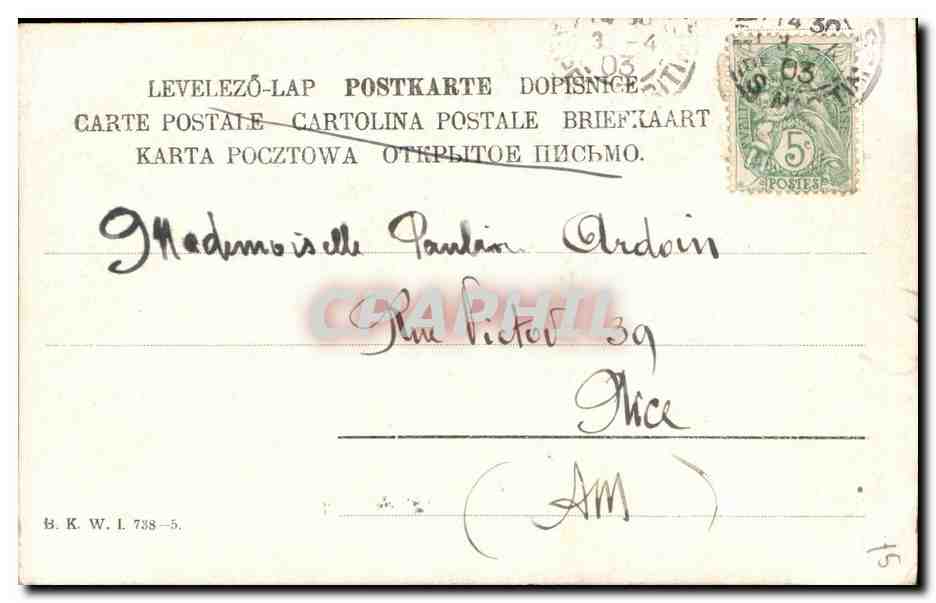 14 30
3 - 4
03
14 30
03
LEVELEZŐ-LAP POSTKARTE DOPISNICE
CARTE POSTALE CARTOLINA POSTALE BRIEFKAART
KARTA POCZTOWA ОТКРЫТОЕ ПИСЬМО.
5c
POSTES
Mademoiselle Pauline Ardoin
CPARPHIL
Rue Victor 39
Nice
(AM)
B. K. W. I. 738-5.
15